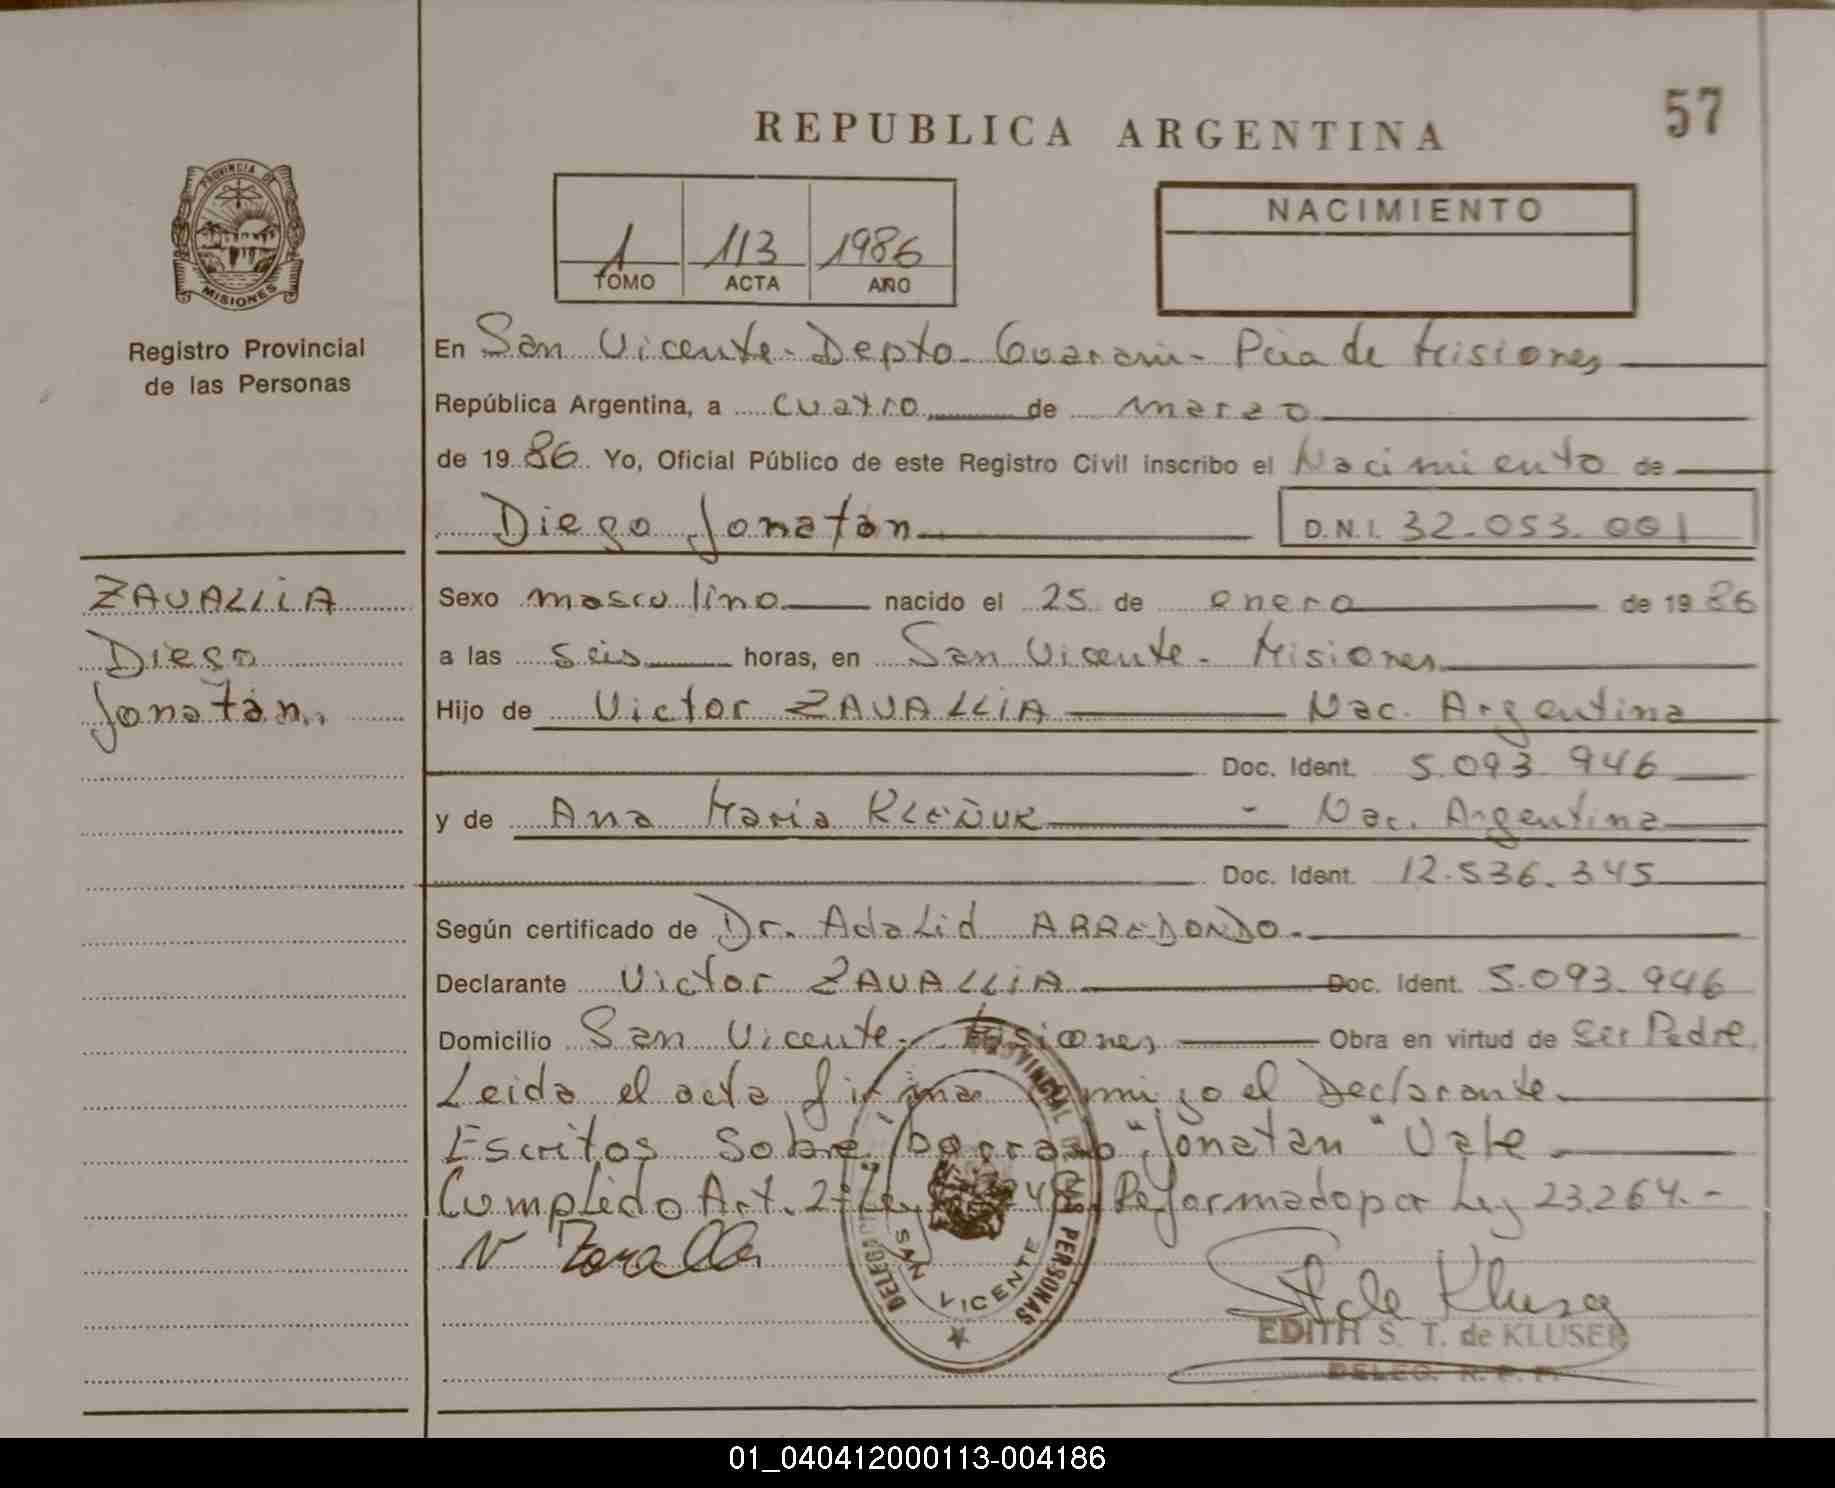 57
REPUBLICA ARGENTINA
PROVINCIA DE
MISIONES
1 113 1986
TOMO ACTA AÑO
NACIMIENTO
Registro Provincial
de las Personas
En San Vicente - Depto - Guarani - Pcia de Misiones
República Argentina, a cuatro de marzo
de 1986 Yo, Oficial Público de este Registro Civil inscribo el Nacimiento de
Diego Jonatán
D.N.I. 32.053.001
ZAVALLIA
Diego
Jonatán
Sexo masculino nacido el 25 de enero de 1986
a las seis horas, en San Vicente - Misiones
Hijo de Victor ZAVALLIA Nac. Argentina
Doc. Ident. 5.093.946
y de Ana Maria - Nac. Argentina
Doc. Ident. 12.536.345
Según certificado de Dr. Adalid ARREDONDO.
Declarante Victor ZAVALLIA Doc. Ident. 5.093.946
Domicilio San Vicente - Misiones Obra en virtud de ser Padre
Leida el acta firma conmigo el Declarante.
Escritos sobre borrado "Jonatan" Vale
Cumplido Art. 2 - Reformado por Ley 23.264.-
DELEGACION SAN VICENTE
PROVINCIAL
LAS PERSONAS
V Zavalla
St de Kluser
EDITH S. T. de KLUSER
DELEG. R. P. P.
01_040412000113-004186